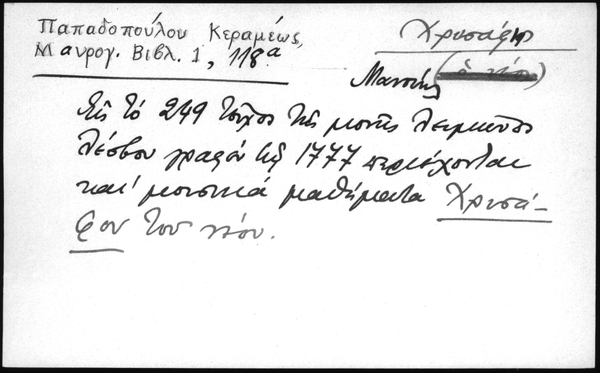 Παπαδοπούλου Κεραμέως,
Μαυρογ. Βιβλ. 1, 118α
Χρυσάφης
Μανουήλ (ὁ νέος)
Εἰς τό 249 τεῦχος τῆς μονῆς Λειμῶνος
Λέσβου γραφέν τῷ 1777 περιέχονται
καί μουσικά μαθήματα Χρυσά-
φου τοῦ νέου.